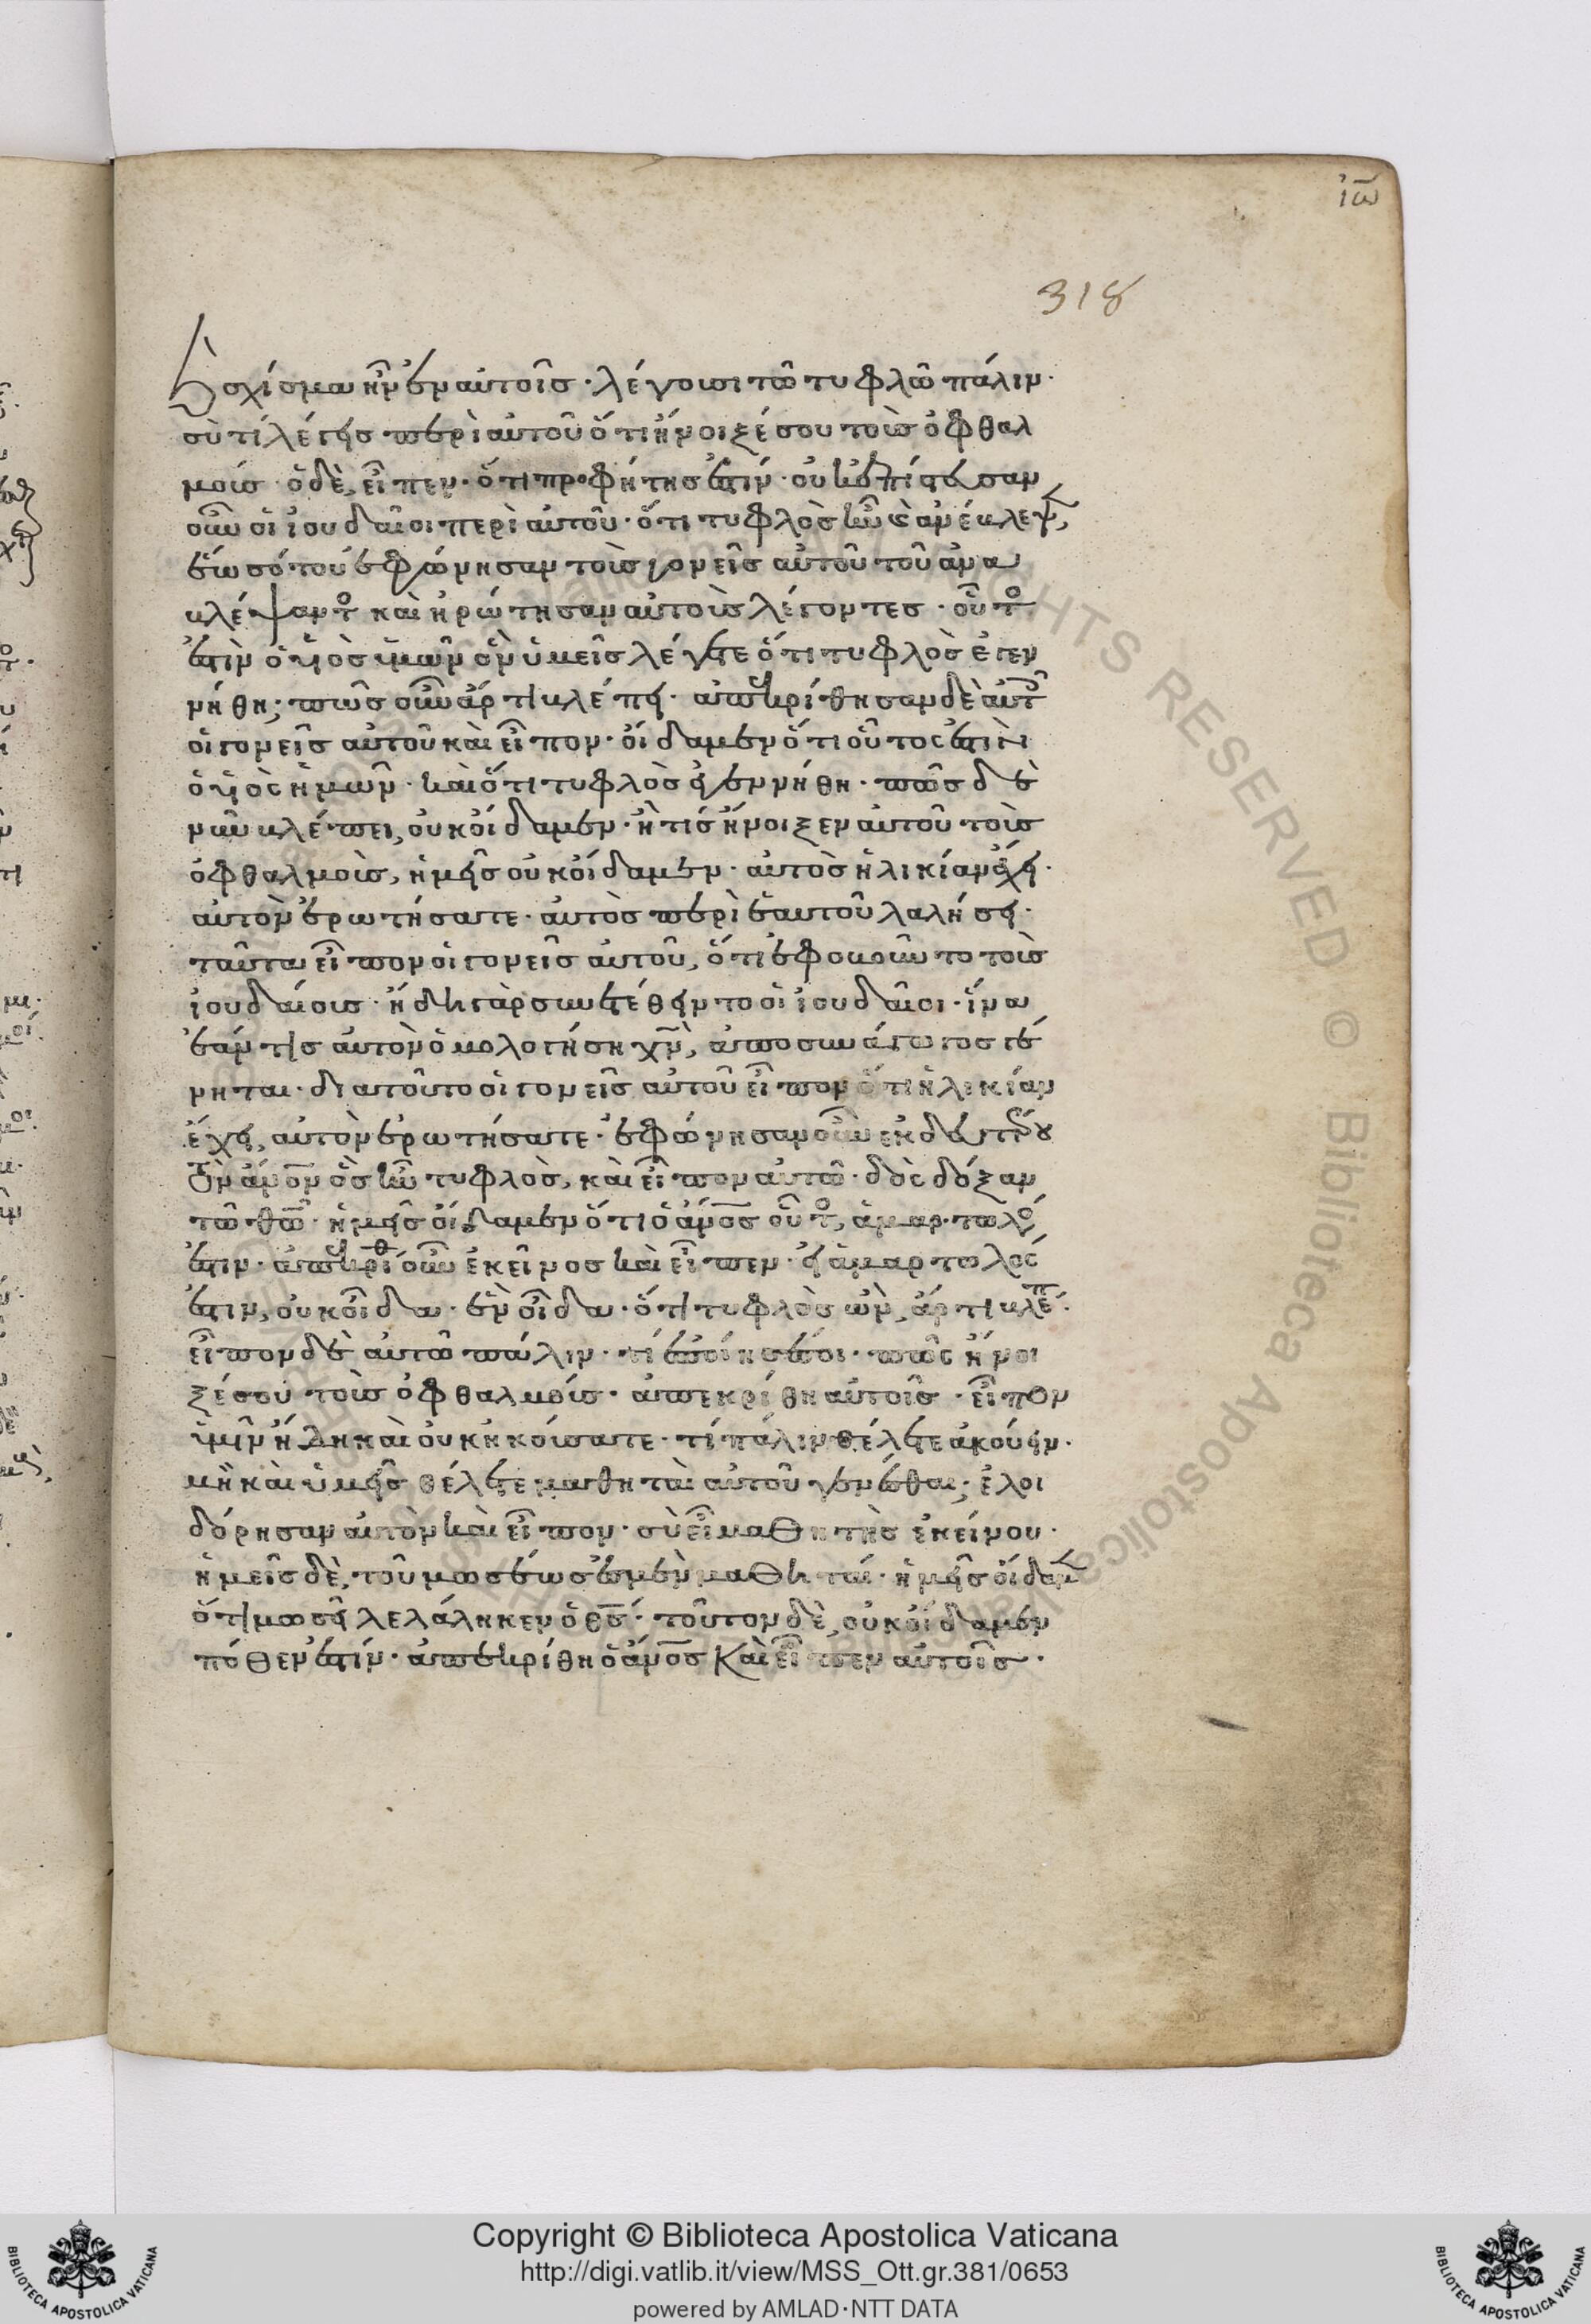 ἰω
318
σχίσμα ἦν ἐν αὐτοῖς· λέγουσι τῶ τυφλῶ πάλιν·
σὺ τί λέγεις περὶ αὐτοῦ ὅτι ἤνοιξέ σου τοὺς ὀφθαλ
μούς· ὁ δὲ, εἶπεν· ὅτι προφήτης ἐστίν· οὐκ ἐπίστευσαν
οὖν οἱ ἰουδαῖοι περὶ αὐτοῦ· ὅτι τυφλὸς ἦν καὶ ἀνέβλεψ,
ἕως ὅτου ἐφώνησαν τοὺς γονεῖς αὐτοῦ τοῦ ἀνα
βλέψαντο καὶ ἠρώτησαν αὐτοὺς λέγοντες· οὗτο
ἐστὶν ὁ υἱὸς ὑμῶν ὃν ὑμεῖς λέγετε ὅτι τυφλὸς ἐγεν
νήθη; πῶς οὖν ἄρτι βλέπει· ἀπεκρίθησαν δὲ αὐτ
οἱ γονεῖς αὐτοῦ καὶ εἶπον· οἴδαμεν ὅτι οὗτος ἐστὶν
ὁ υἱὸς ἡμῶν· καὶ ὅτι τυφλὸς ἐγεννήθη· πῶς δὲ
νῦν βλέπει, οὐκ οἴδαμεν· ἢ τίς ἤνοιξεν αὐτοῦ τοὺς
ὀφθαλμοὺς, ἡμεῖς οὐκ οἴδαμεν· αὐτὸς ἡλικίαν ἔχει·
αὐτὸν ἐρωτήσατε· αὐτὸς περὶ ἑαυτοῦ λαλήσει·
ταῦτα εἶπον οἱ γονεῖς αὐτοῦ, ὅτι ἐφοβοῦντο τοὺς
ἰουδαίους· ἤδη γὰρ συνετέθειντο οἱ ἰουδαῖοι· ἵνα
ἐάν τις αὐτὸν ὁμολογήση χν, ἀποσυνάγωγος γέ
νηται· διατοῦτο οἱ γονεῖς αὐτοῦ εἶπον ὅτι ἡλικίαν
ἔχει, αὐτὸν ἐρωτήσατε· ἐφώνησαν οὖν ἐκ δευτέρου
τὸν ἄνον ὃς ἦν τυφλὸς, καὶ εἶπον αὐτῶ· δὸς δόξαν
τῶ θω· ἡμεῖς οἴδαμεν ὅτι ὁ ἄνος οὗτο, ἁμαρτωλό
ἐστιν· ἀπεκρίθ οὖν ἐκεῖνος καὶ εἶπεν· εἰ ἁμαρτωλός
ἐστιν, οὐκ οἶδα· ἓν οἶδα· ὅτι τυφλὸς ὢν, ἄρτι βλέπ·
εἶπον δὲ αὐτῶ πάλιν· τί ἐποίησέ σοι· πῶς ἤνοι
ξέ σου τοὺς ὀφθαλμούς· ἀπεκρίθη αὐτοῖς· εἶπον
ὑμῖν ἤδη καὶ οὐκ ἠκούσατε· τί πάλιν θέλετε ἀκούειν·
μὴ καὶ ὑμεῖς θέλετε μαθηταὶ αὐτοῦ γενέσθαι; ἐλοι
δόρησαν αὐτὸν καὶ εἶπον· σὺ εἶ μαθητὴς ἐκείνου·
ἡμεῖς δὲ, τοῦ μωσέως ἐσμὲν μαθηταί· ἡμεῖς οἴδαμ
ὅτι μωσεῖ λελάληκεν ὁ θς· τοῦτον δὲ, οὐκ οἴδαμεν
πόθεν ἐστίν· ἀπεκρίθη ὁ ἄνος καὶ εἶπεν αὐτοῖς·
Copyright © Biblioteca Apostolica Vaticana
http://digi.vatlib.it/view/MSS_Ott.gr.381/0653
powered by AMLAD·NTT DATA